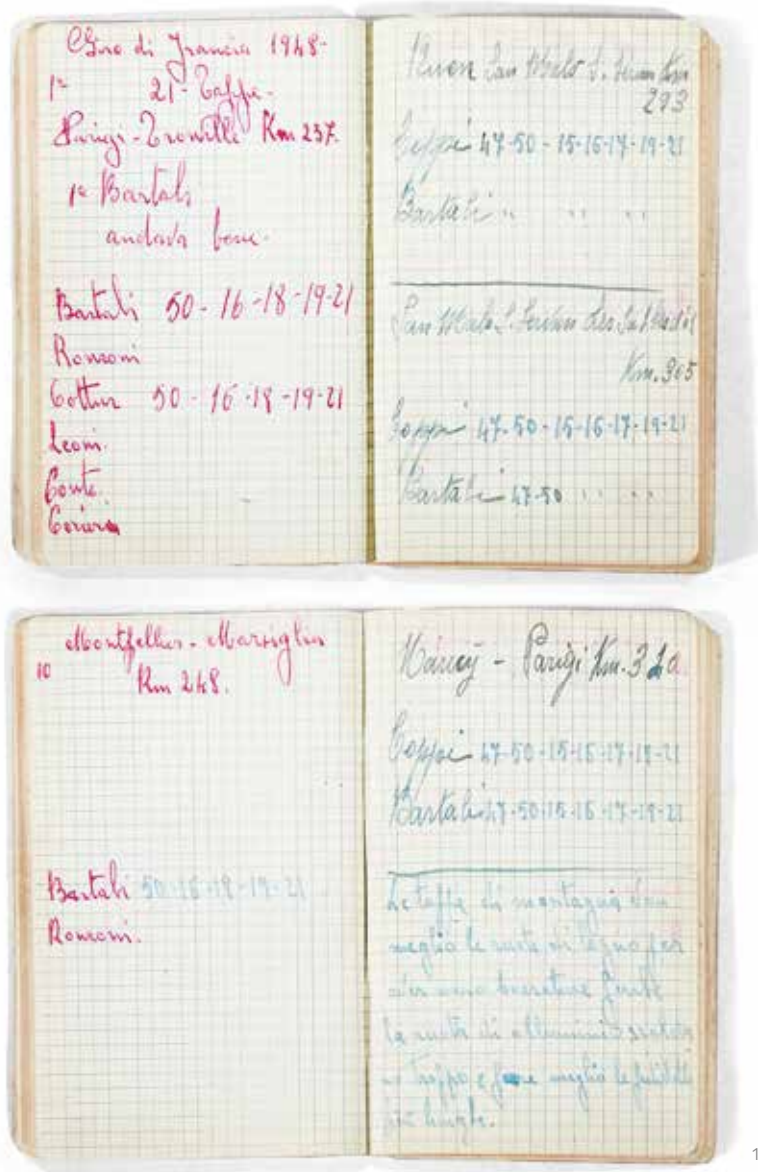 Giro di Francia 1948-
1ª 21- Taffe-
Parigi-Trouville Km 237.
1º Bartali
andava bene-
Bartali 50-16-18-19-21
Ronconi
Cottur 50-16-18-19-21
Leoni.
Conte.
Corrieri
Ruen San Malo S. Km
293
Coppi 47-50-15-16-17-19-21
Bartali " " "
San Malo S. Servan Les
Km. 305
Coppi 47-50-15-16-17-19-21
Bartali 47-50 " "
Montpellier-Marsiglia
10 Km 248.
Bartali 50-16-18-19-21
Ronconi.
Nancÿ - Parigi Km.
Coppi 47-50-15-16-17-19-21
Bartali 47-50-15-16-17-19-21
Le taffe di montagna
meglio le ruote in legno per
le ruote di alluminio
troppo e meglio le
più lunghe.
1